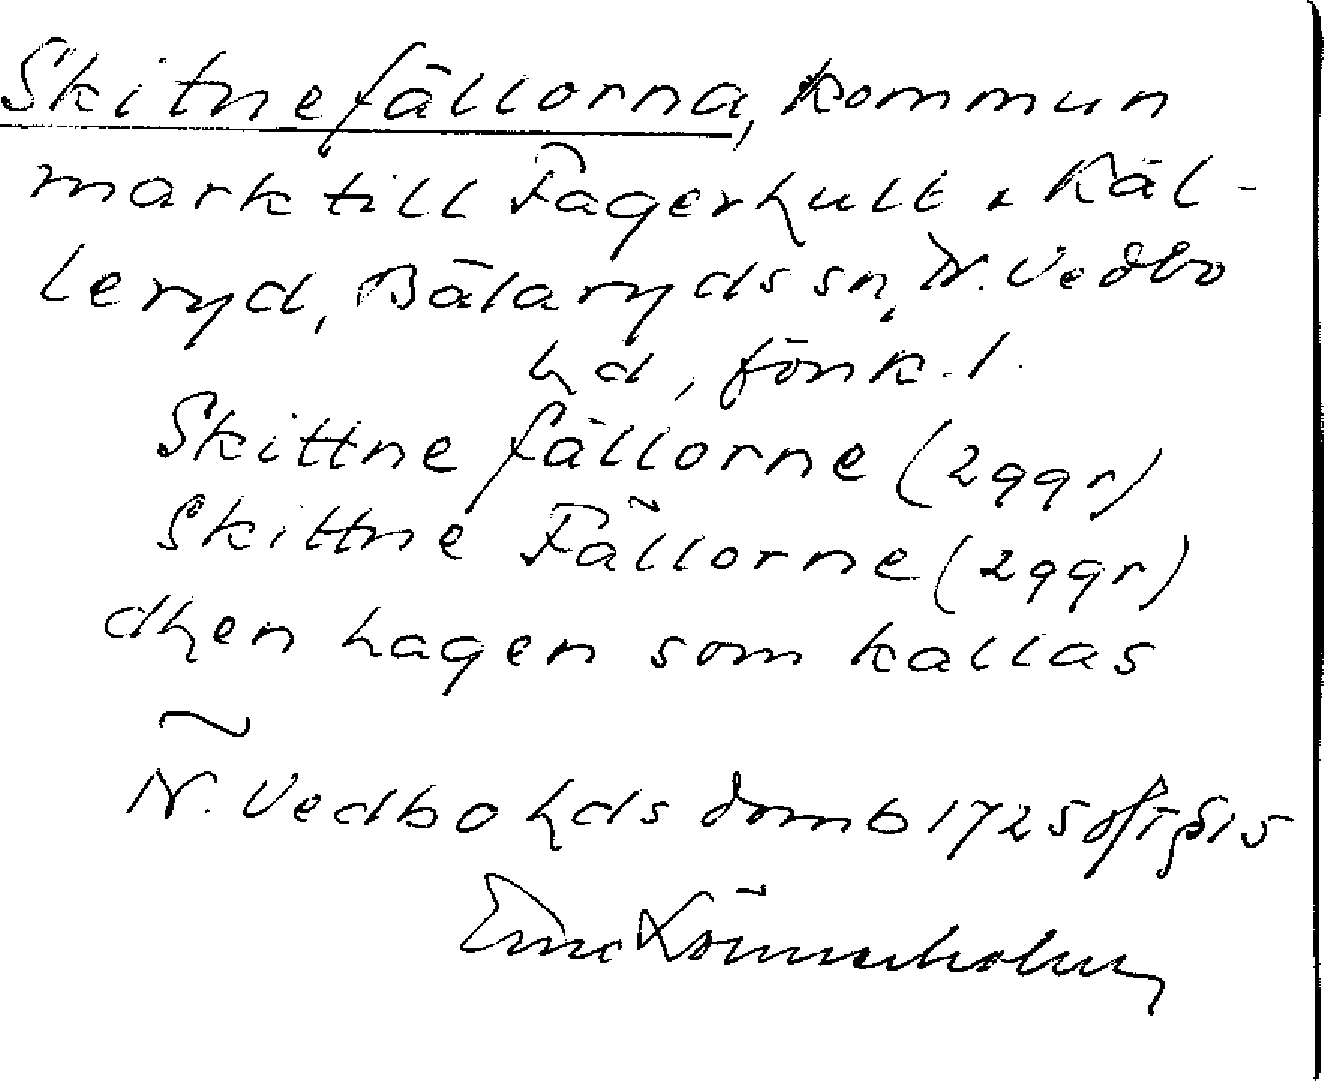 Skitnefällorna, kommun
mark till Fagerhult, Käl-
leryd, Bälaryds sn, N. Vedbo
hd, Jönk. l.
Skittne fällorne (2 ggr)
Skittne Fällorne (2 ggr)
dhen hagen som kallas
~
N. Vedbo hds domb 1725 § 15